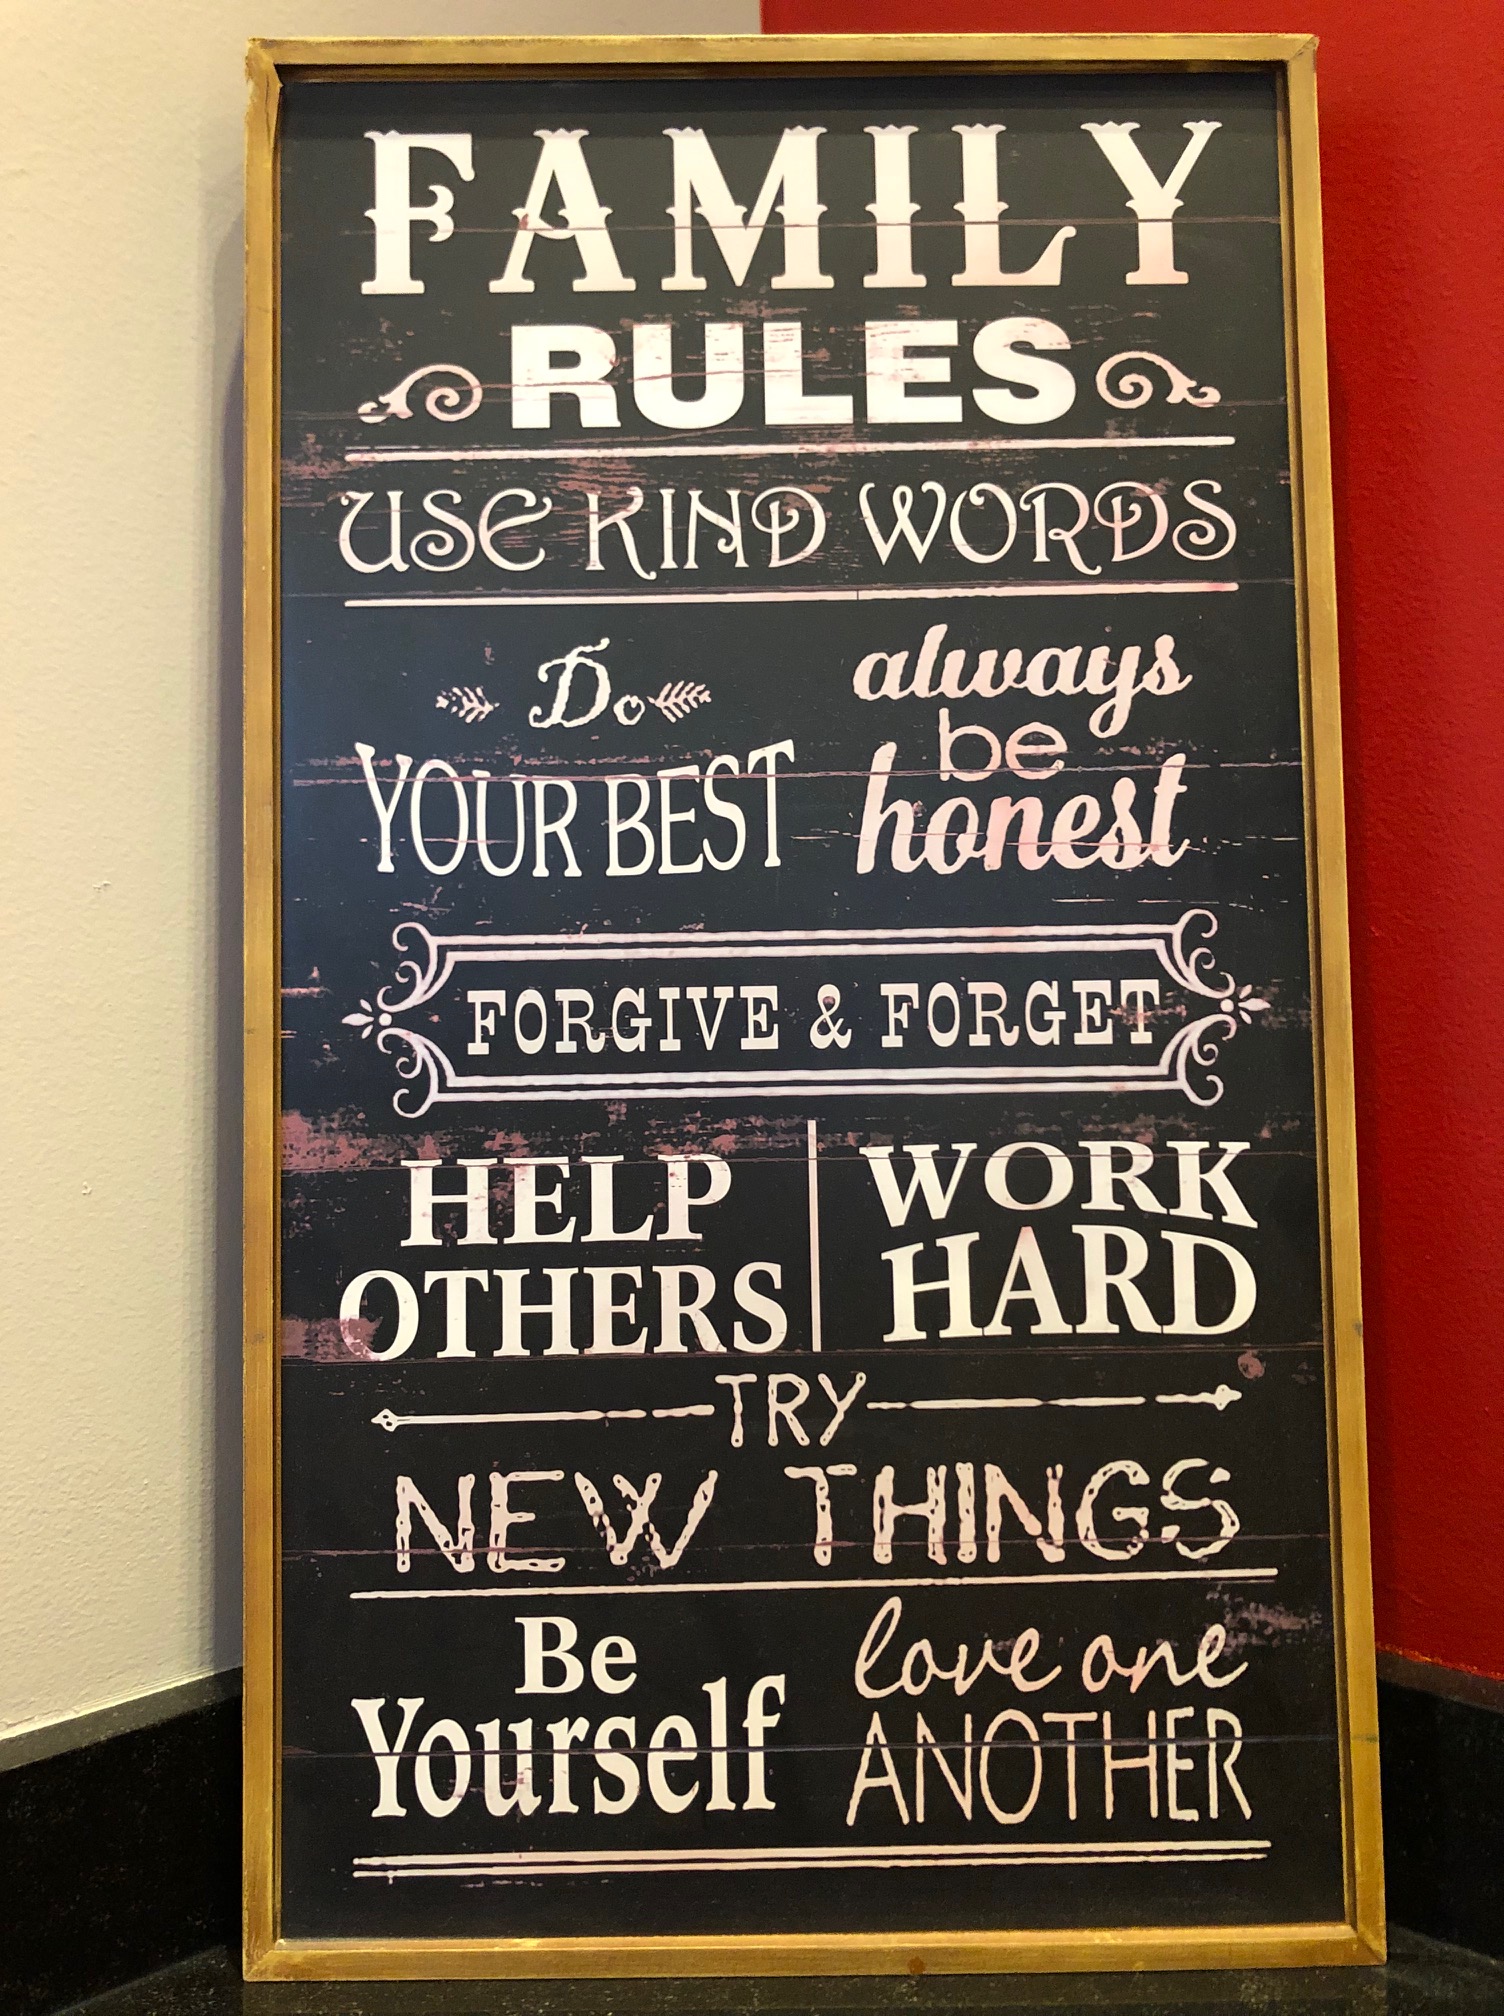 FAMILY
RULES
USE KIND WORDS
Do
YOUR BEST
always
be
honest
FORGIVE & FORGET
HELP
OTHERS
WORK
HARD
TRY
NEW THINGS
Be
Yourself
love one
ANOTHER